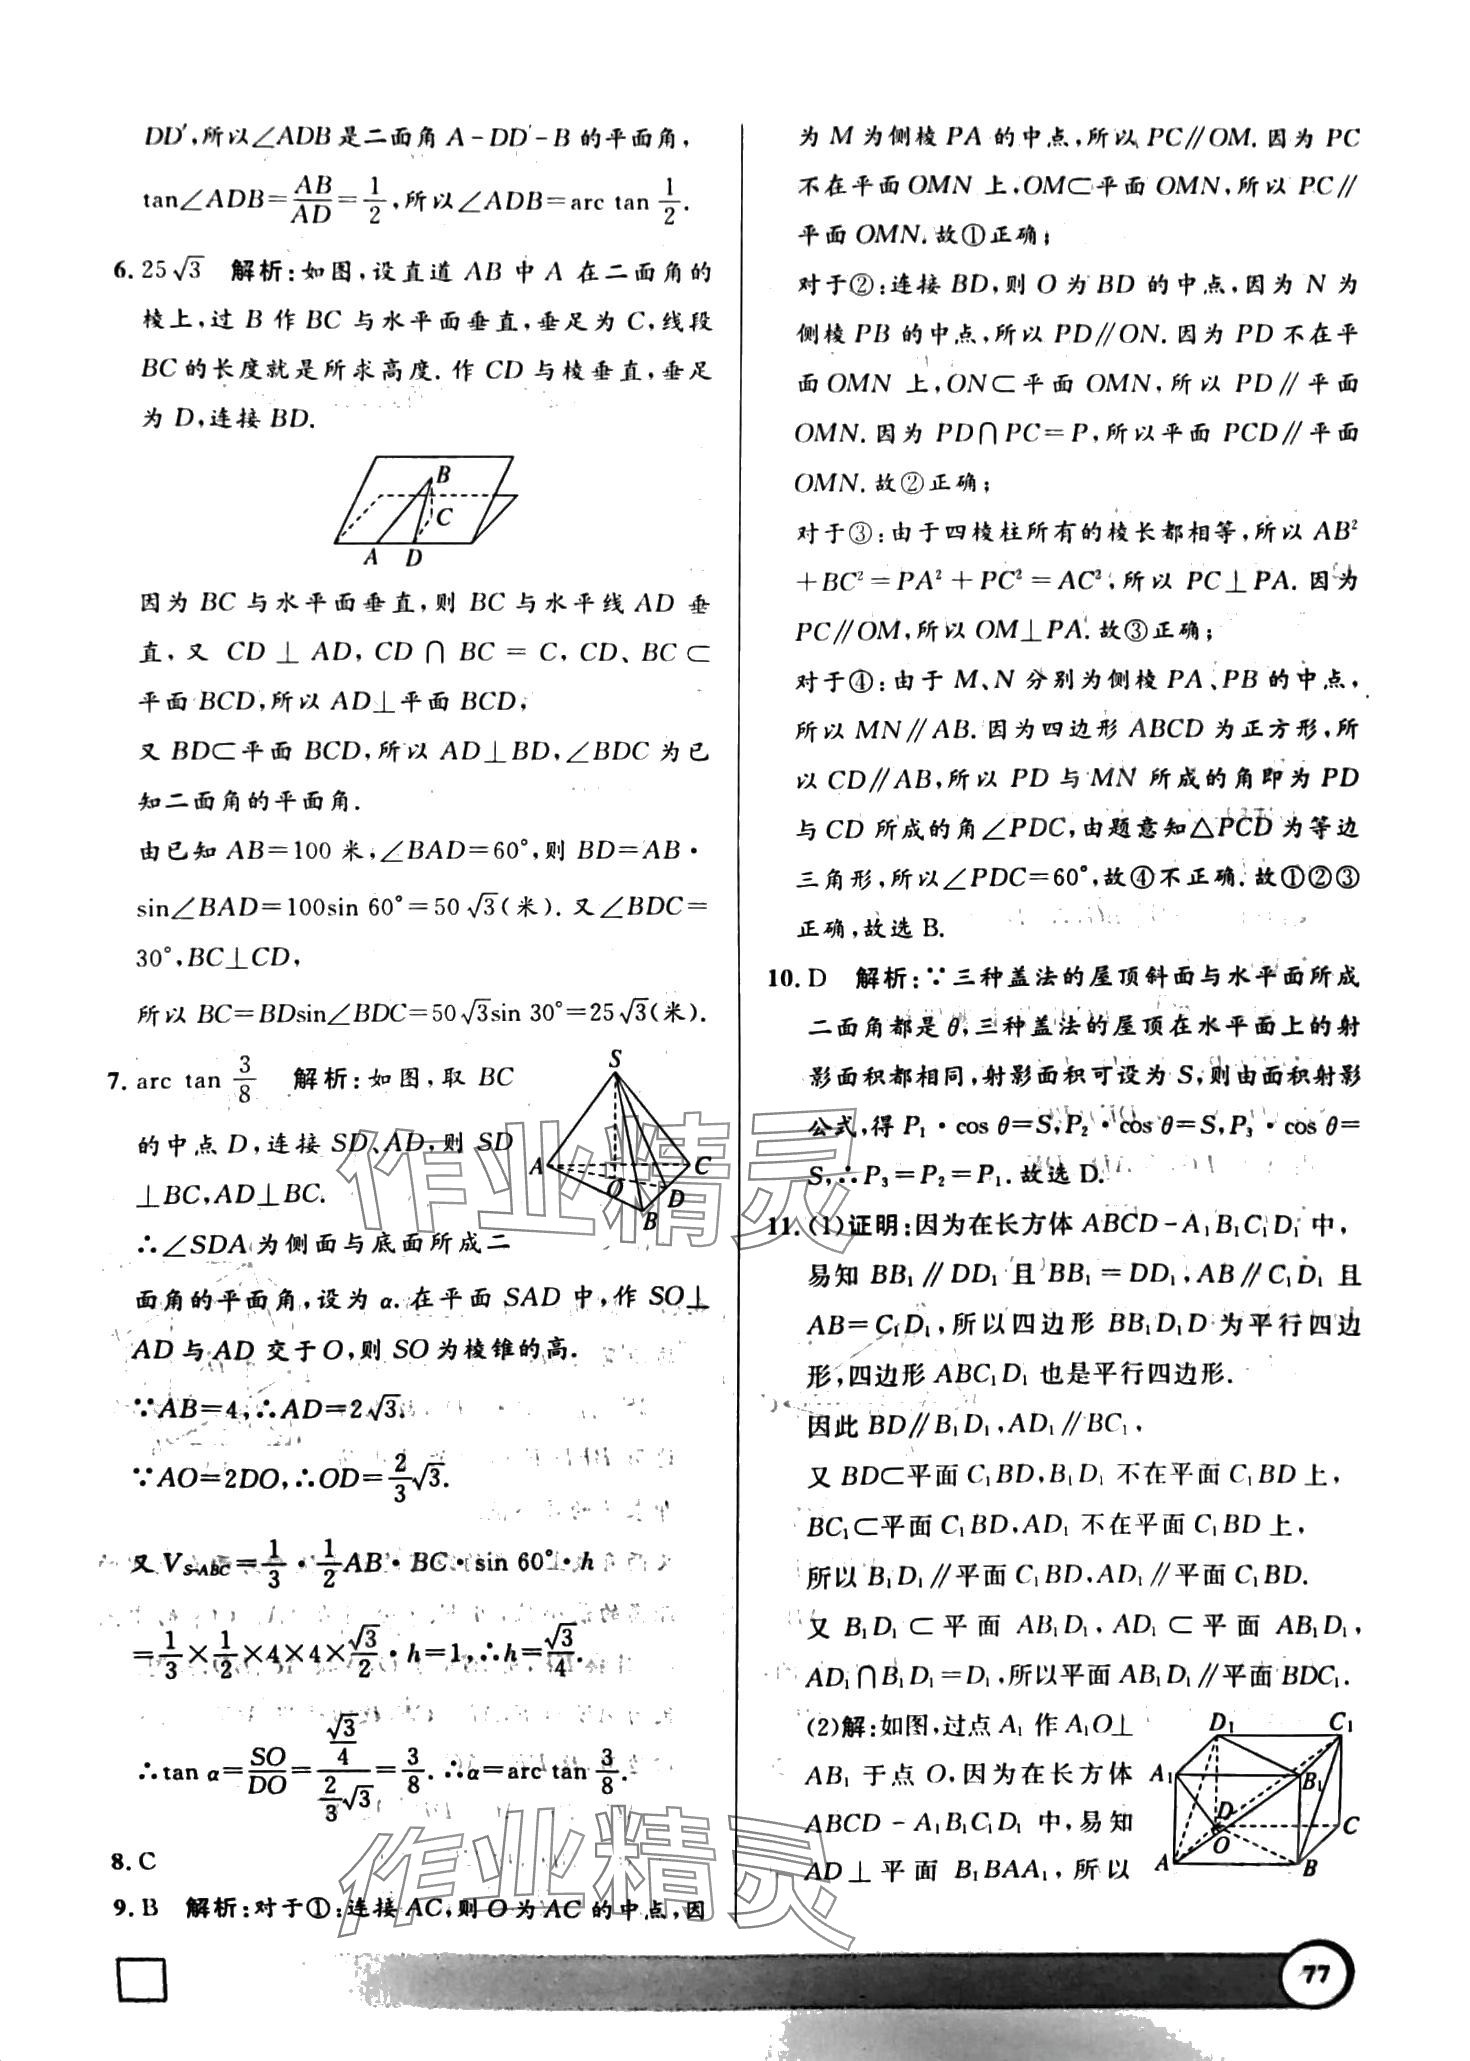 DD′,所以∠ADB是二面角A-DD′-B的平面角,
tan∠ADB=AB/AD=1/2,所以∠ADB=arc tan 1/2.
6. 25√3 解析:如图,设直道 AB 中 A 在二面角的
棱上,过 B 作 BC 与水平面垂直,垂足为 C,线段
BC的长度就是所求高度.作 CD与棱垂直,垂足
为 D,连接 BD.
B
C
A D
因为 BC 与水平面垂直,则 BC 与水平线 AD 垂
直,又 CD⊥AD,CD∩BC=C,CD、BC⊂
平面BCD,所以AD⊥平面BCD,
又BD⊂平面 BCD,所以 AD⊥BD,∠BDC 为已
知二面角的平面角.
由已知 AB=100 米,∠BAD=60°,则 BD=AB·
sin∠BAD=100sin 60°=50√3(米).又∠BDC=
30°,BC⊥CD,
所以 BC=BDsin∠BDC=50√3sin 30°=25√3(米).
7. arc tan 3/8 解析:如图,取 BC
的中点 D,连接 SD、AD,则 SD
⊥BC,AD⊥BC.
S
A
C
O
D
B
∴∠SDA为侧面与底面所成二
面角的平面角,设为α.在平面 SAD 中,作 SO⊥
AD与AD交于O,则SO为棱锥的高.
∵AB=4,∴AD=2√3.
∵AO=2DO,∴OD=2/3√3.
又V_{S-ABC}=1/3·1/2AB·BC·sin 60°·h
=1/3×1/2×4×4×√3/2·h=1,∴h=√3/4.
∴tan α=SO/DO=(√3/4)/(2/3√3)=3/8.∴α=arc tan 3/8.
8. C
9. B 解析:对于①:连接 AC,则 O 为 AC 的中点,因
为 M 为侧棱 PA 的中点,所以 PC∥OM.因为 PC
不在平面OMN 上,OM⊂平面 OMN,所以 PC∥
平面OMN.故①正确;
对于②:连接 BD,则 O 为 BD 的中点,因为 N 为
侧棱 PB 的中点,所以 PD∥ON.因为 PD 不在平
面OMN 上,ON⊂平面 OMN,所以 PD∥平面
OMN.因为 PD∩PC=P,所以平面 PCD∥平面
OMN.故②正确;
对于③:由于四棱柱所有的棱长都相等,所以 AB²
+BC²=PA²+PC²=AC²,所以 PC⊥PA.因为
PC∥OM,所以OM⊥PA.故③正确;
对于④:由于 M、N 分别为侧棱 PA、PB 的中点,
所以 MN∥AB.因为四边形 ABCD 为正方形,所
以 CD∥AB,所以 PD 与 MN 所成的角即为 PD
与 CD 所成的角∠PDC,由题意知△PCD 为等边
三角形,所以∠PDC=60°,故④不正确.故①②③
正确,故选 B.
10. D 解析:∵三种盖法的屋顶斜面与水平面所成
二面角都是θ,三种盖法的屋顶在水平面上的射
影面积都相同,射影面积可设为 S,则由面积射影
公式,得 P₁·cos θ=S,P₂·cos θ=S,P₃·cos θ=
S,∴P₃=P₂=P₁.故选 D.
11. (1)证明:因为在长方体 ABCD-A₁B₁C₁D₁ 中,
易知 BB₁∥DD₁ 且 BB₁=DD₁,AB∥C₁D₁ 且
AB=C₁D₁,所以四边形 BB₁D₁D 为平行四边
形,四边形ABC₁D₁ 也是平行四边形.
因此 BD∥B₁D₁,AD₁∥BC₁,
又 BD⊂平面 C₁BD,B₁D₁ 不在平面 C₁BD 上,
BC₁⊂平面 C₁BD,AD₁ 不在平面 C₁BD 上,
所以 B₁D₁∥平面 C₁BD,AD₁∥平面 C₁BD.
又 B₁D₁⊂平面 AB₁D₁,AD₁⊂平面 AB₁D₁,
AD₁∩B₁D₁=D₁,所以平面 AB₁D₁∥平面BDC₁.
(2)解:如图,过点 A₁ 作 A₁O⊥
AB₁ 于点 O,因为在长方体
ABCD-A₁B₁C₁D₁ 中,易知
AD⊥平面 B₁BAA₁,所以
D₁ C₁
A₁
B₁
D
O
C
A B
作业精灵
作业精灵
77